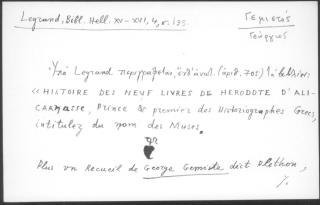 Legrand, Bibl. Hell. XV-XVI, 4, σ. 133.
Γεμιστός
Γεώργιος
Ὑπὸ Legrand περιγράφεται, (ἀριθ. 705)
« HISTOIRE DES NEUF LIVRES DE HERODOTE D'ALI-
CARNASSE, Prince & premier des Historiographes Grecs,
intitulez du nom des Muses.
Plus un Recueil de George Gemiste dict Plethon,
./.